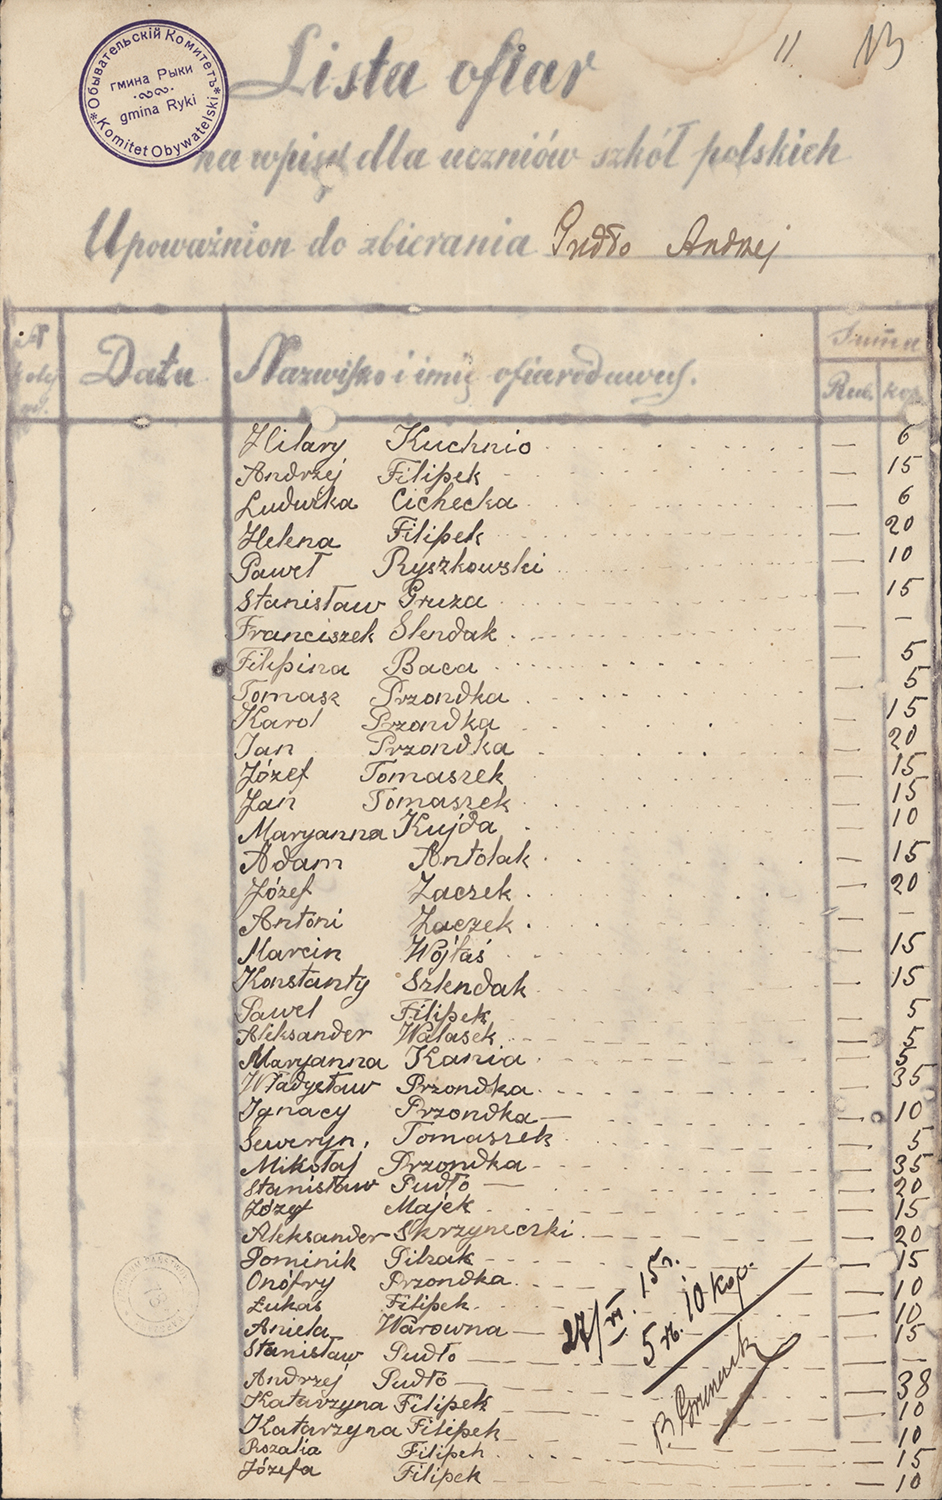 Обывательскій Комитетъ
гмина Рыки
gmina Ryki
Komitet Obywatelski
11. 13
Lista ofiar
na wpisy dla uczniów szkół polskich
Upoważnion do zbierania Pudło Andrzej
Data Nazwisko i imię ofiarodawcy. Summa
Rub. kop.
Hilary Kuchnio — 6
Andrzej Filipek — 15
Ludwika Cichecka — 6
Helena Filipek — 20
Paweł Ryszkowski — 10
Stanisław Gruza — 15
Franciszek Slendak — –
Filipina Baca — 5
Tomasz Przondka — 5
Karol Przondka — 15
Jan Przondka — 20
Józef Tomaszek — 15
Jan Tomaszek — 15
Maryanna Kujda — 10
Adam Antolak — 15
Józef Zaczek — 20
Antoni Zaczek — –
Marcin Wójtaś — 15
Konstanty Szlendak — 15
Paweł Filipek — 5
Aleksander Walasek — 5
Maryanna Kania — 5
Władysław Przondka — 35
Ignacy Przondka — 10
Seweryn, Tomaszek — 5
Mikołaj Przondka — 35
Stanisław Pudło — 20
Józef Majek — 15
Aleksander Skrzyneczki — 20
Dominik Pilzak — 15
Onófry Przondka — 10
Łukas Filipek — 10
Aniela Warowna — 15
Stanisław Pudło — —
Andrzej Pudło — 38
Katarzyna Filipek — 10
Katarzyna Filipek — 10
Rozalia Filipek — 15
Józefa Filipek — 10
27/VI. 15 r.
5 rb. 10 kop.